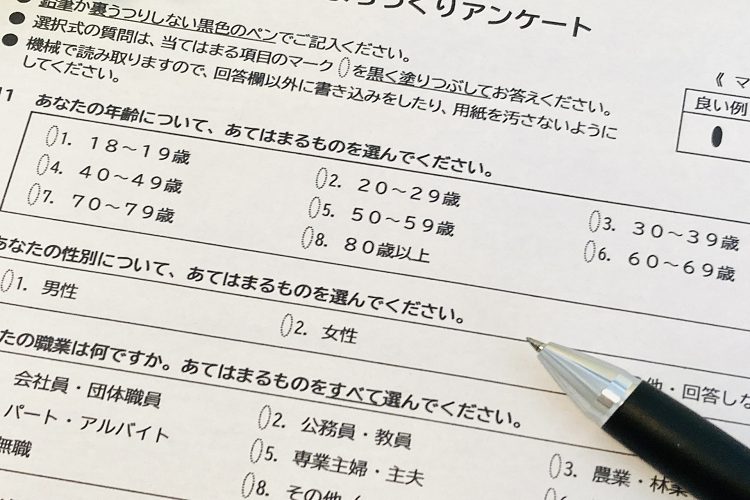 づくりアンケート
鉛筆か裏うつりしない黒色のペンでご記入ください。
● 選択式の質問は、当てはまる項目のマーク を黒く塗りつぶしてお答えください。
● 機械で読み取りますので、回答欄以外に書き込みをしたり、用紙を汚さないように
してください。
《 マ
良い例
11 あなたの年齢について、あてはまるものを選んでください。
1. 18～19歳 2. 20～29歳 3. 30～39歳
4. 40～49歳 5. 50～59歳 6. 60～69歳
7. 70～79歳 8. 80歳以上
あなたの性別について、あてはまるものを選んでください。
1. 男性 2. 女性 他・回答しな
たの職業は何ですか。あてはまるものをすべて選んでください。
会社員・団体職員 2. 公務員・教員 3. 農業・林業
パート・アルバイト 5. 専業主婦・主夫
無職 8. その他